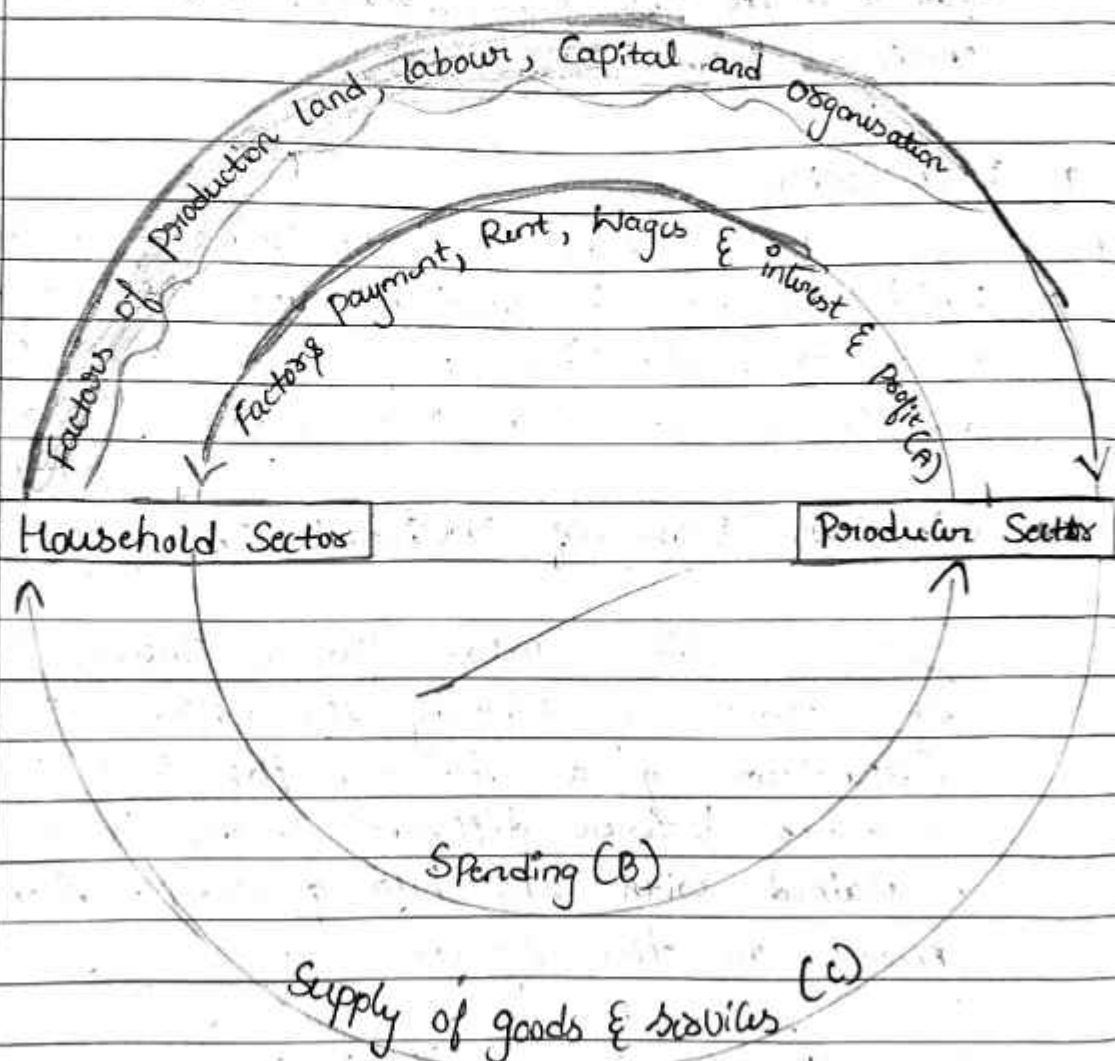 Factors of production land, labour, Capital and organisation
Factors payment, Rent, Wages & interest & profit (A)
Household Sector
Producer Sector
Spending (B)
Supply of goods & services (C)